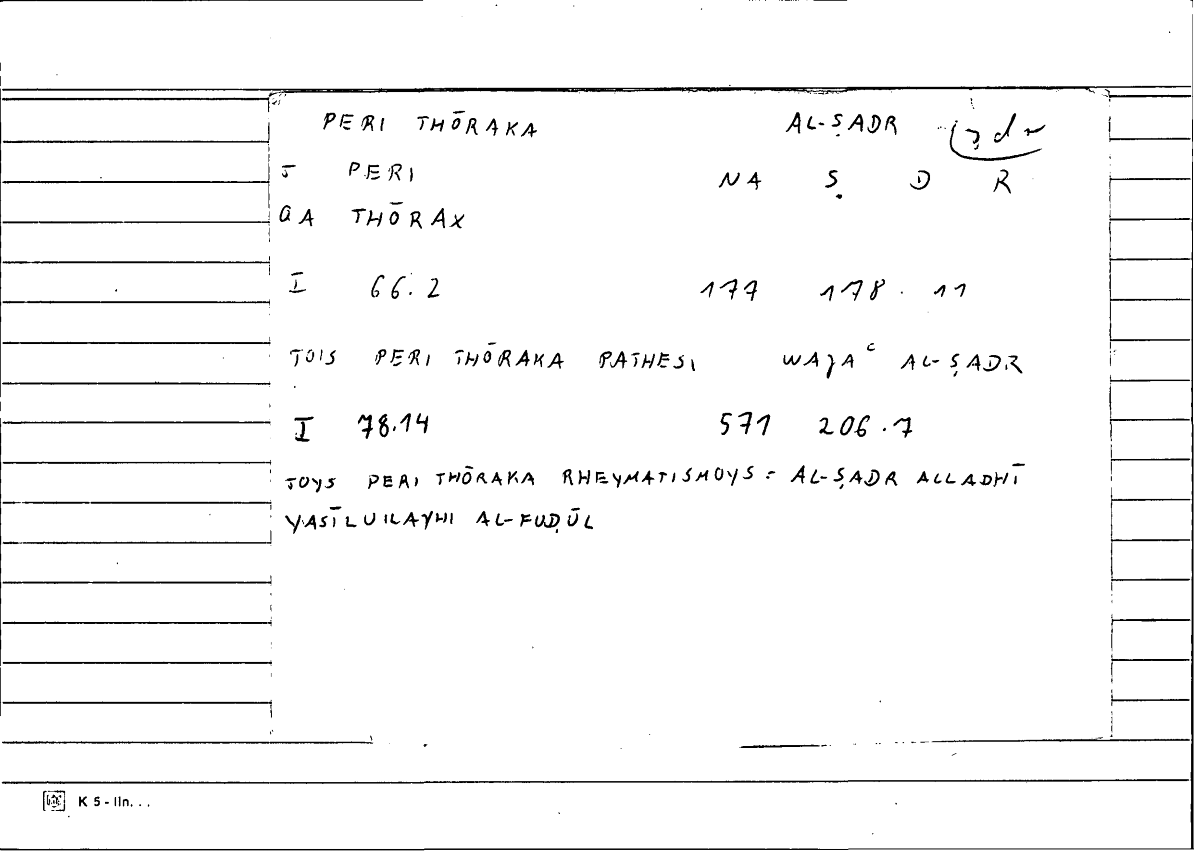 PERI THŌRAKA AL-ṢADR ṣdr
J PERI NA Ṣ D R
QA THŌRAX
I 66.2 177 178.11
TOIS PERI THŌRAKA PATHESI WAJAᶜ AL-ṢADR
I 78.14 571 206.7
TOYS PERI THŌRAKA RHEYMATISMOYS = AL-ṢADR ALLADHĪ
YASĪLU ILAYHI AL-FUḌŪL
K 5 - lln...